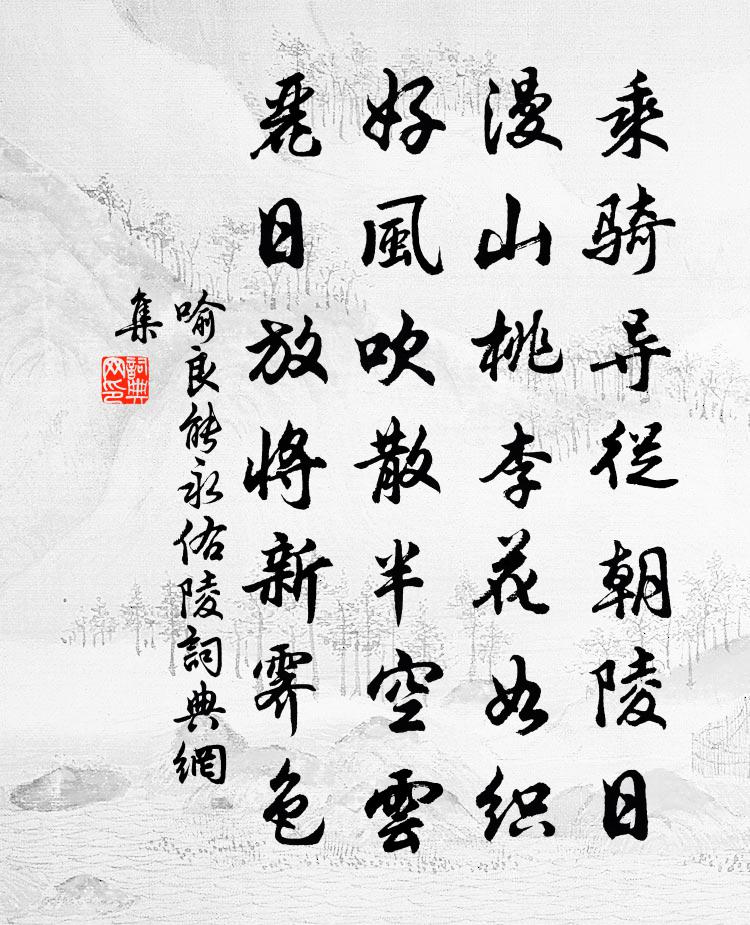 乘骑导從朝陵日
漫山桃李花如织
好風吹散半空雲
麗日放將新霽色
喻良能永佑陵詞典網
集
詞典
网印